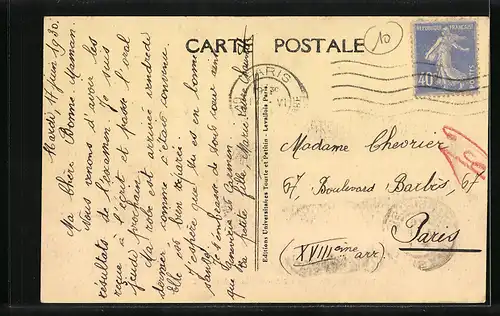 CARTE POSTALE
10
REPUBLIQUE FRANÇAISE
40
PARIS
Mardi 17 juin 1930.
Ma chère Bonne Maman
Nous venons d'avoir les
résultats de l'examen. Je suis
reçue à l'écrit et passe l'oral
jeudi prochain.
Ma robe est arrivée vendredi
dernier comme c'était convenu.
Elle est bien réparée.
J'espère que tu es en bonne
santé.
Je t'embrasse de tout cœur ainsi
que
Ta petite fille Marie
Editions Universitaires Tourte et Petitin - Levallois Paris
Madame Chevrier
67, Boulevard Barbès, 67
Paris
(XVIIIème arr)